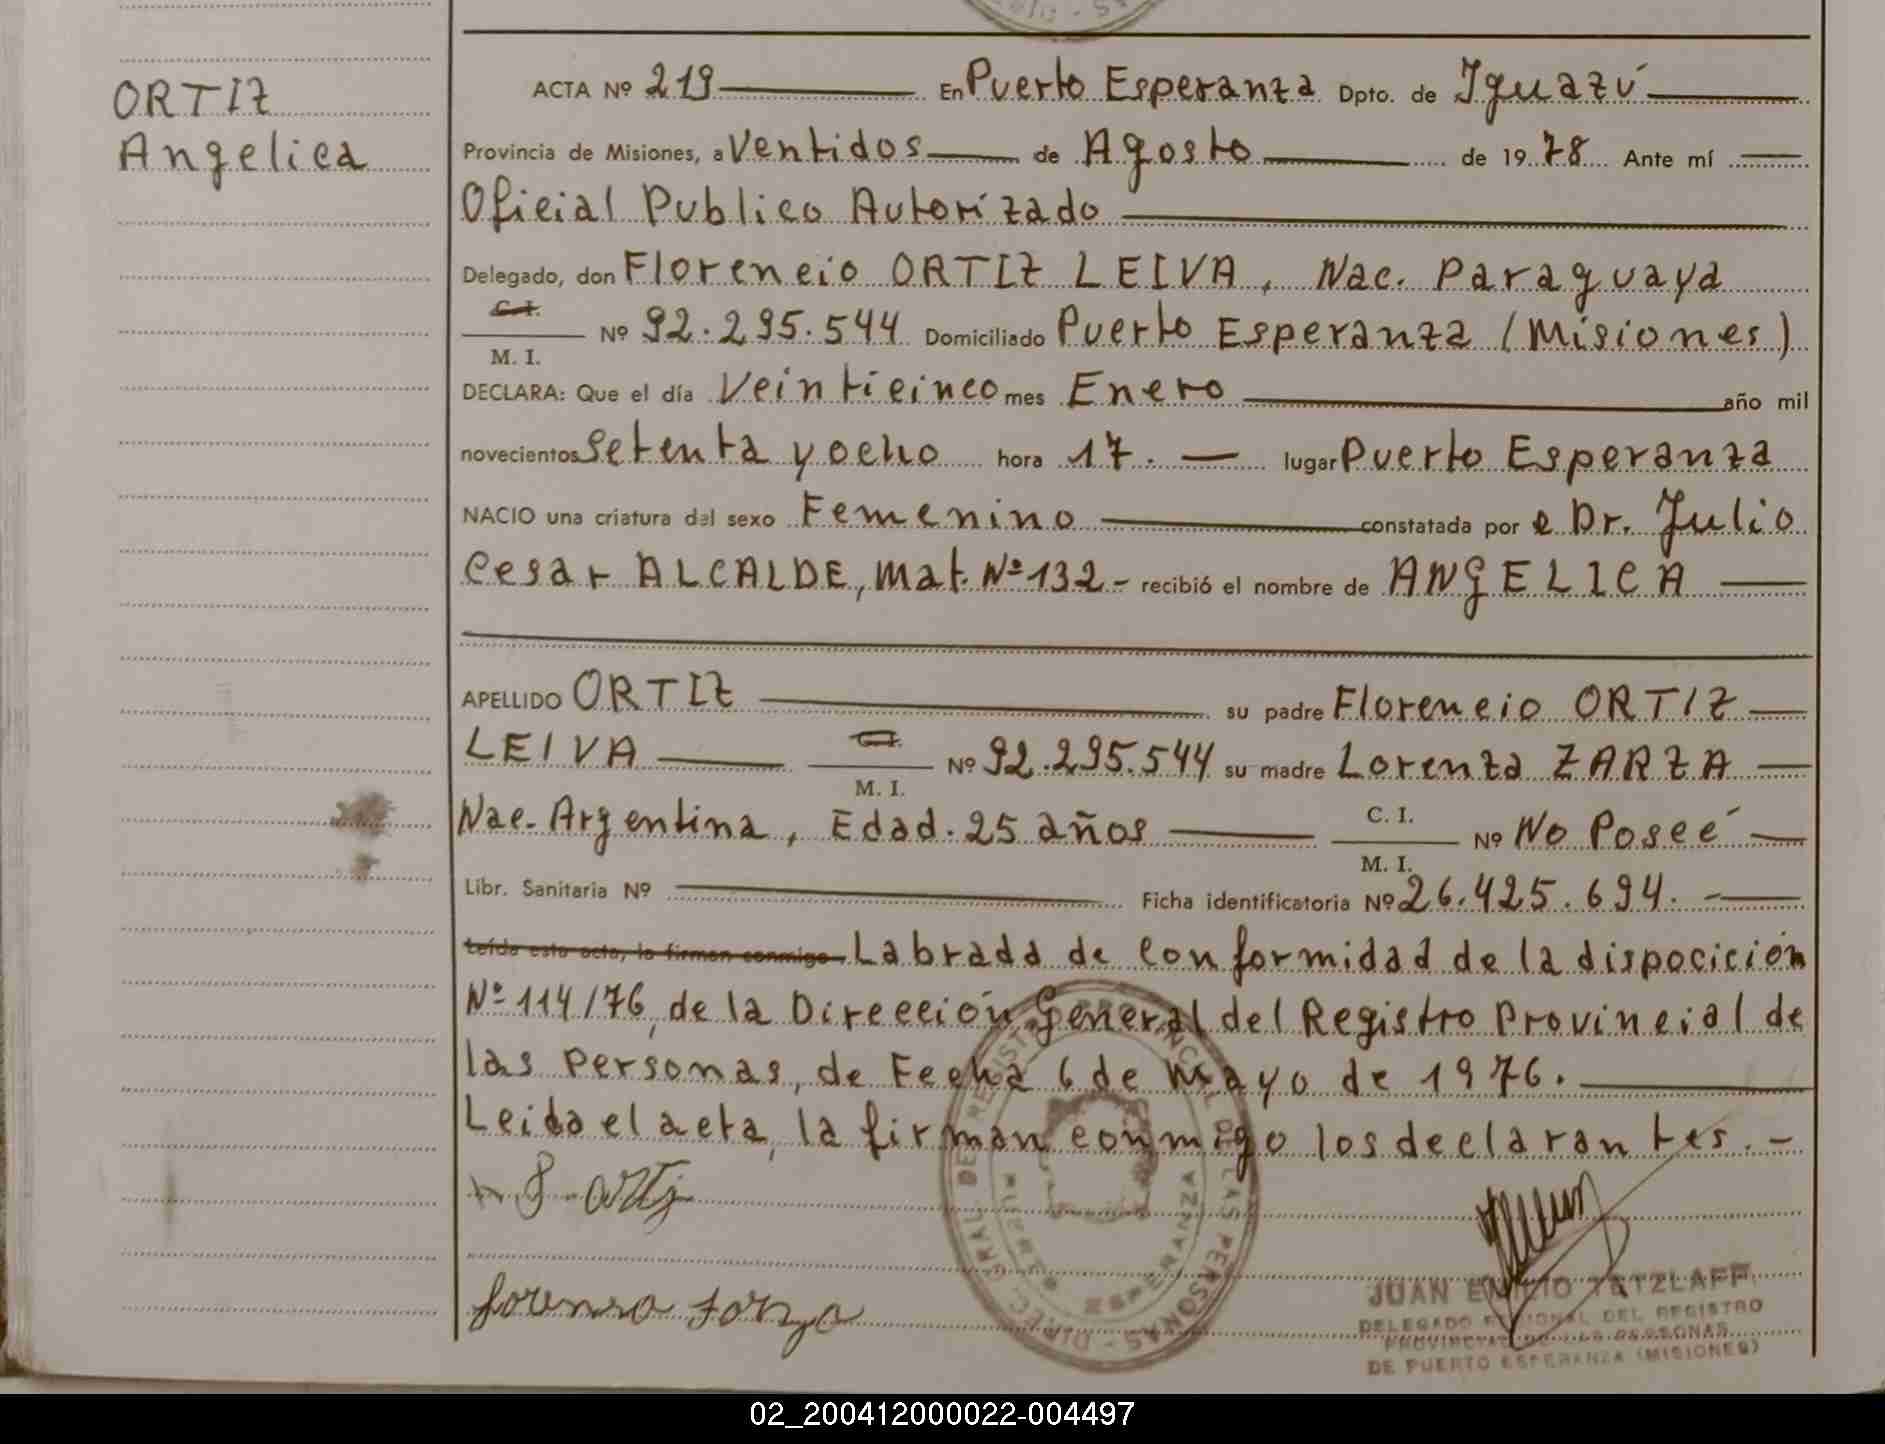 ORTIZ
Angelica
ACTA Nº 219 En Puerto Esperanza Dpto. de Iguazú
Provincia de Misiones, a Ventidos de Agosto de 1978 Ante mí
Oficial Publico Autorizado
Delegado, don Florencio ORTIZ LEIVA, Nac. Paraguaya
C.I.
M. I. Nº 92.295.544 Domiciliado Puerto Esperanza (Misiones)
DECLARA: Que el día Veinticinco mes Enero año mil
novecientos Setenta y ocho hora 17.- lugar Puerto Esperanza
NACIO una criatura del sexo Femenino constatada por e Dr. Julio
Cesar ALCALDE, Mat. Nº 132.- recibió el nombre de ANGELICA
APELLIDO ORTIZ su padre Florencio ORTIZ
LEIVA M. I. Nº 92.295.544 su madre Lorenza ZARZA
Nac. Argentina, Edad. 25 años C. I. M. I. Nº No Poseé
Libr. Sanitaria Nº Ficha identificatoria Nº 26.425.694.-
Leída esta acta, la firman conmigo Labrada de Conformidad de la disposición
Nº 114/76, de la Dirección General del Registro Provincial de
las Personas, de Fecha 6 de Mayo de 1976.
Leida el acta, la firman conmigo los declarantes.-
DIREC. GRAL. DEL REGISTRO PROVINCIAL DE LAS PERSONAS
PUERTO ESPERANZA
Lorenza Zarza
JUAN EMILIO TETZLAFF
DELEGADO REGIONAL DEL REGISTRO
PROVINCIAL DE LAS PERSONAS
DE PUERTO ESPERANZA (MISIONES)
02_200412000022-004497